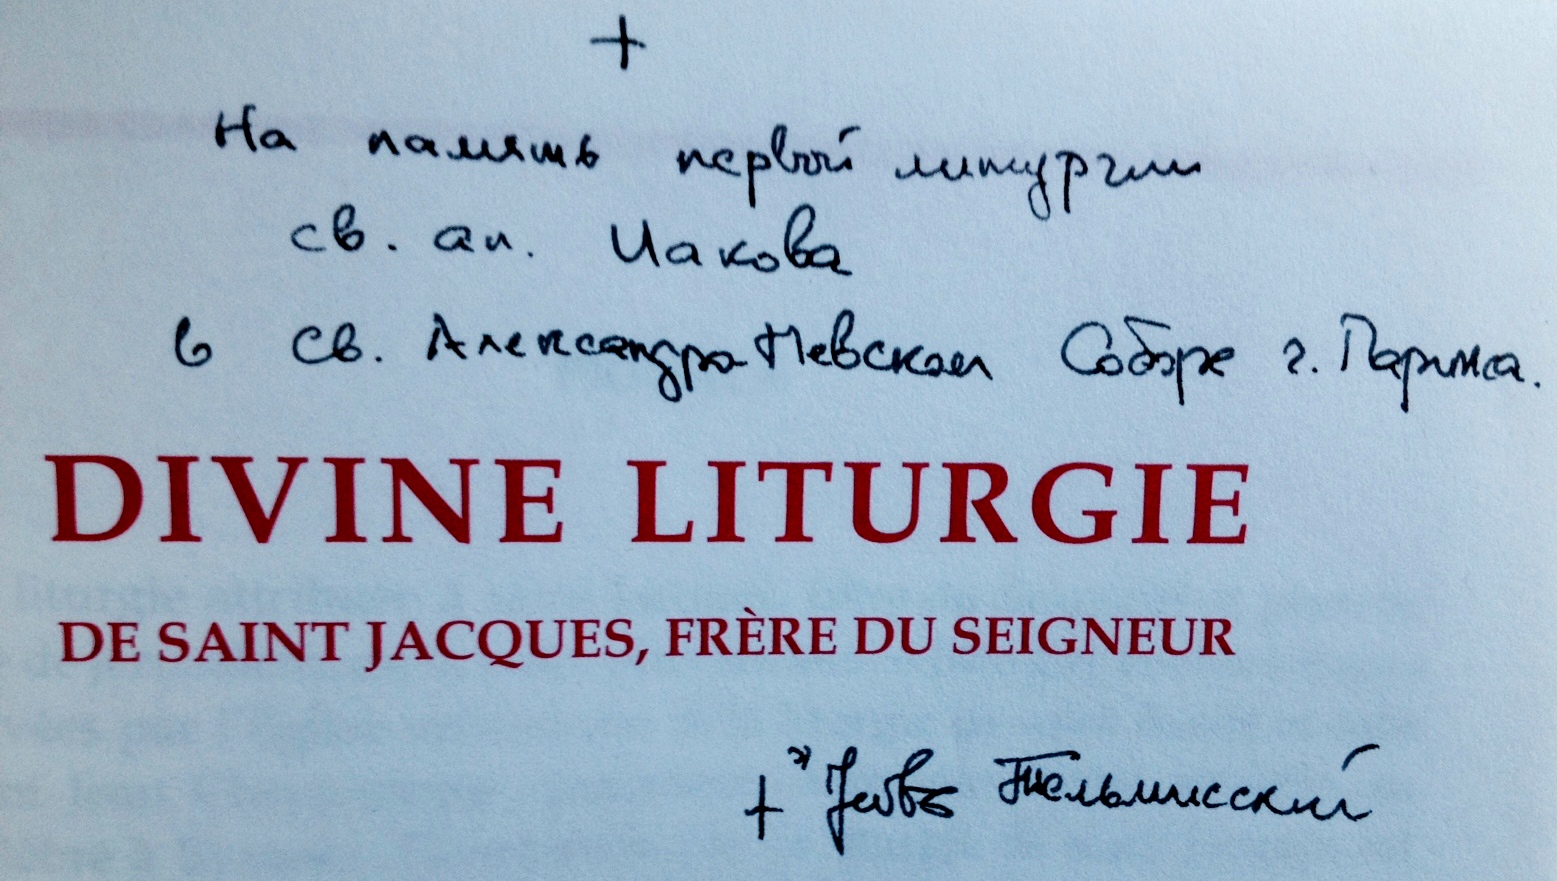 +
На память первой литургии
св. ап. Иакова
в св. Александро-Невском Соборе г. Парижа.
DIVINE LITURGIE
DE SAINT JACQUES, FRÈRE DU SEIGNEUR
+ Тельмисский